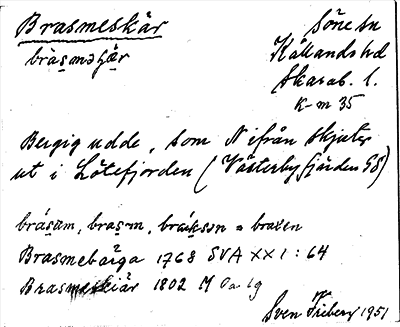 Brasmeskär
Söne sn
Kållands hd
Skarab. l.
K-m 35
Bergig udde, som Nifrån skjuter
ut i Lötefjorden (Västerbyfjärden GS)
bråsəm, brasm, = braxen
Brasmebärga 1768 SVA XXI : 64
Brasmeskiär 1802 M Oa 19
Sven Friberg 1951